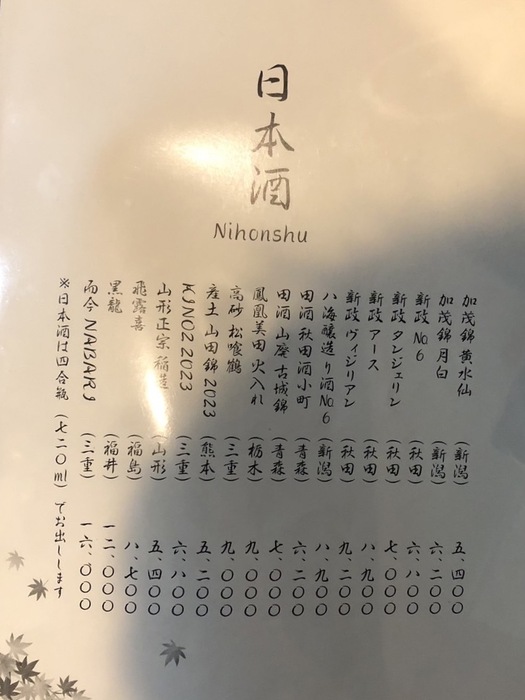 日本酒
Nihonshu
加茂錦 黄水仙 (新潟) 五、四〇〇
加茂錦 月白 (新潟) 六、二〇〇
新政 No6 (秋田) 六、八〇〇
新政 タンジェリン (秋田) 七、〇〇〇
新政 アース (秋田) 八、九〇〇
新政 ヴィジリアン (秋田) 九、二〇〇
八海醸造り酒No6 (新潟) 八、九〇〇
田酒 秋田酒小町 (青森) 六、二〇〇
田酒 山廃 古城錦 (青森) 七、〇〇〇
鳳凰美田 火入れ (栃木) 九、〇〇〇
高砂 松喰鶴 (三重) 九、〇〇〇
産土 山田錦 2023 (熊本) 五、二〇〇
KINO2 2023 (三重) 六、八〇〇
山形正宗 稲造 (山形) 五、四〇〇
飛露喜 (福島) 八、七〇〇
黒龍 (福井) 一二、〇〇〇
而今 NABARI (三重) 一六、〇〇〇
※日本酒は四合瓶 (七二〇ml) でお出しします